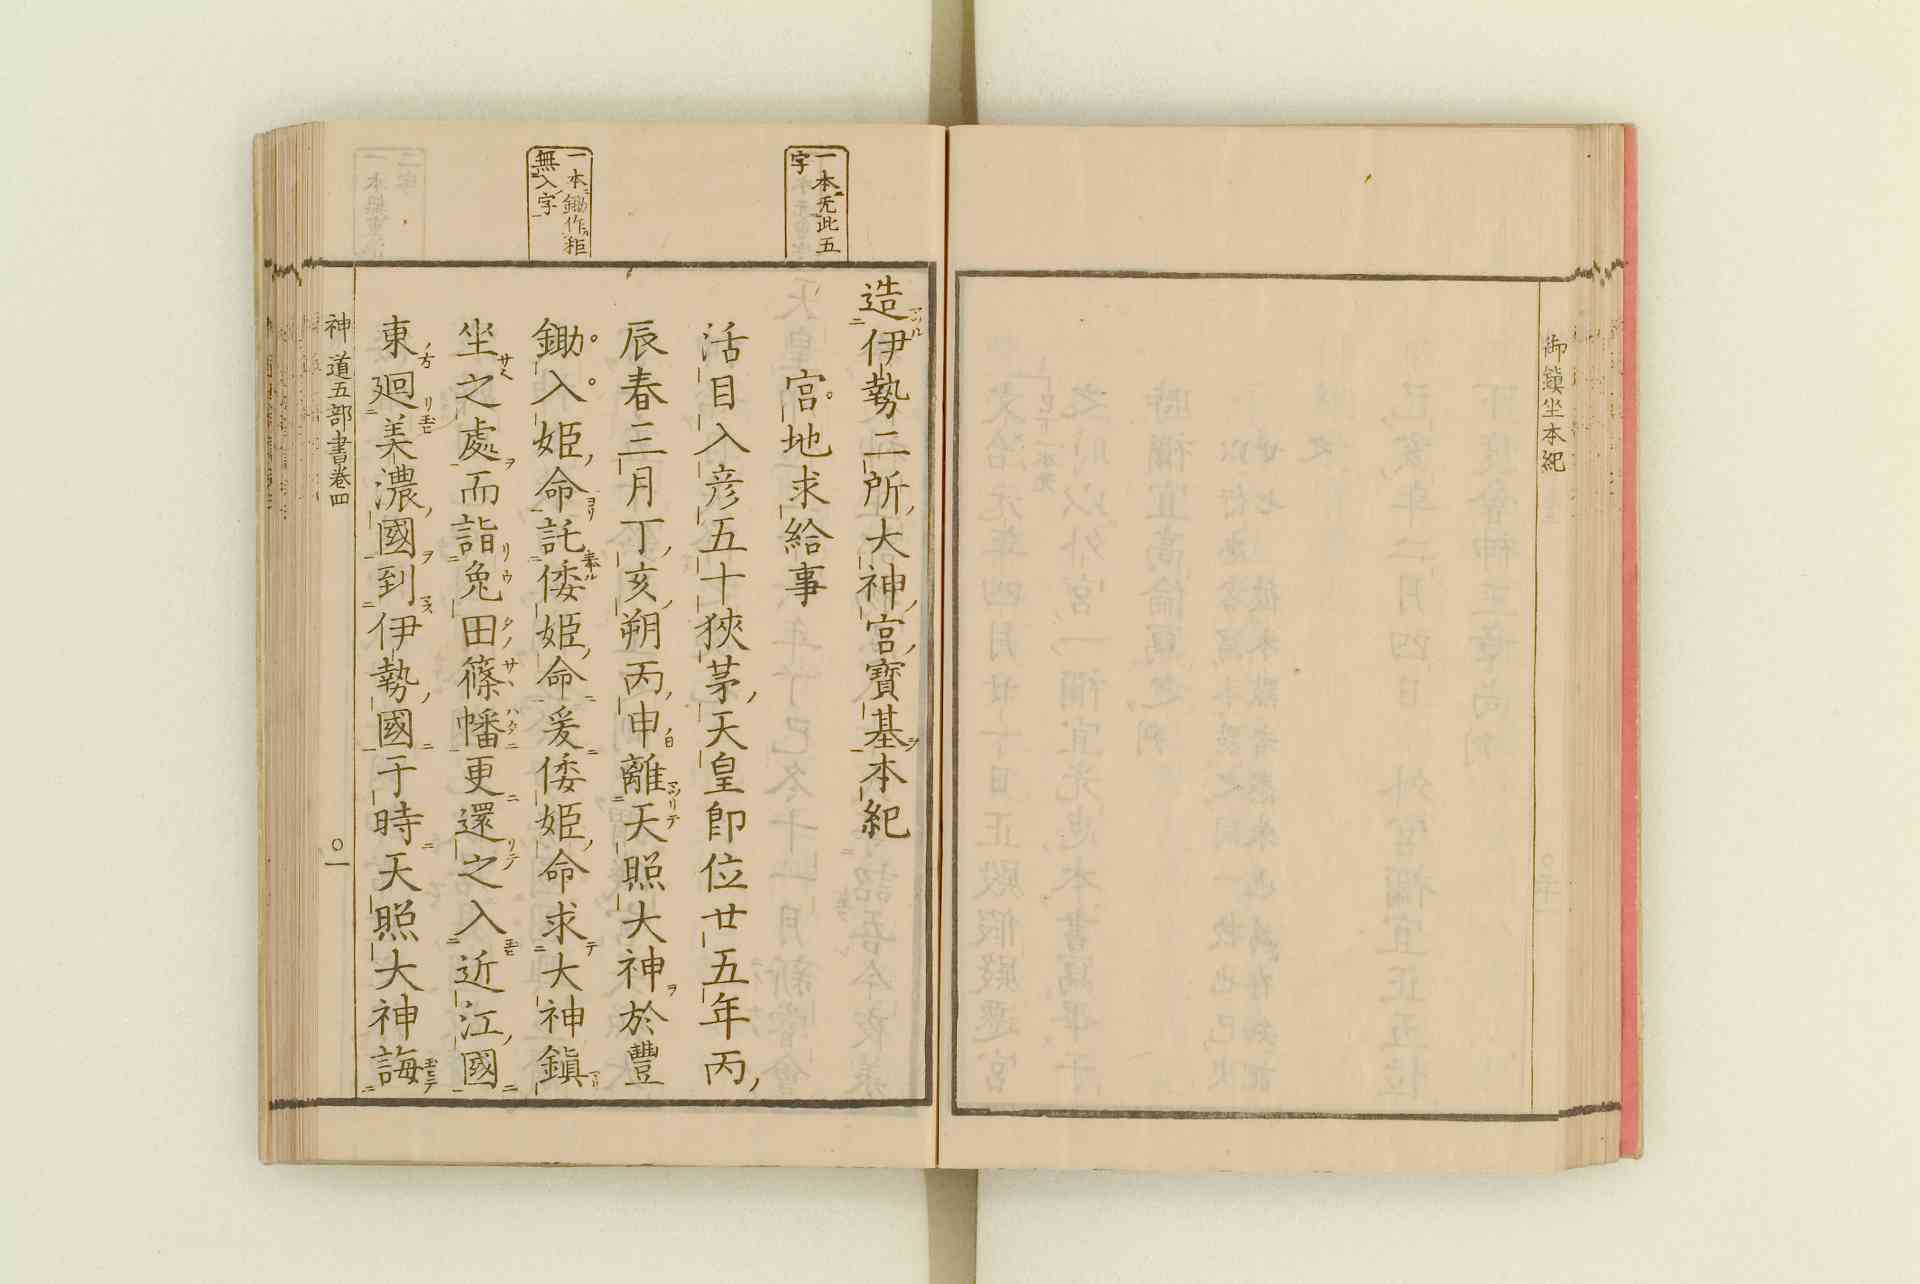 御鎮坐本紀
一本旡此五
字
一本鋤作秬
無入字
造伊勢二所大神宮寶基本紀
宮地求給事
活目入彦五十狹茅天皇卽位廿五年丙
辰春三月丁亥朔丙申離天照大神於豐
鋤入姫命託倭姫命爰倭姫命求大神鎭
坐之處而詣兔田篠幡更還之入近江國
東廻美濃國到伊勢國于時天照大神誨
神道五部書卷四
○一